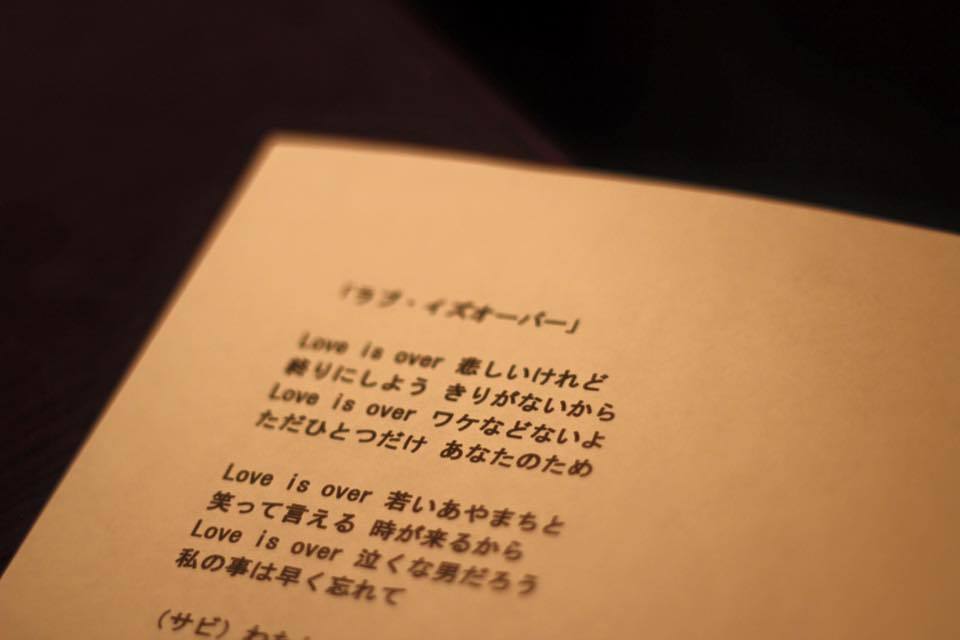 「ラブ・イズオーバー」
Love is over 悲しいけれど
終りにしよう きりがないから
Love is over ワケなどないよ
ただひとつだけ あなたのため
Love is over 若いあやまちと
笑って言える 時が来るから
Love is over 泣くな男だろう
私の事は早く忘れて
（サビ）わた